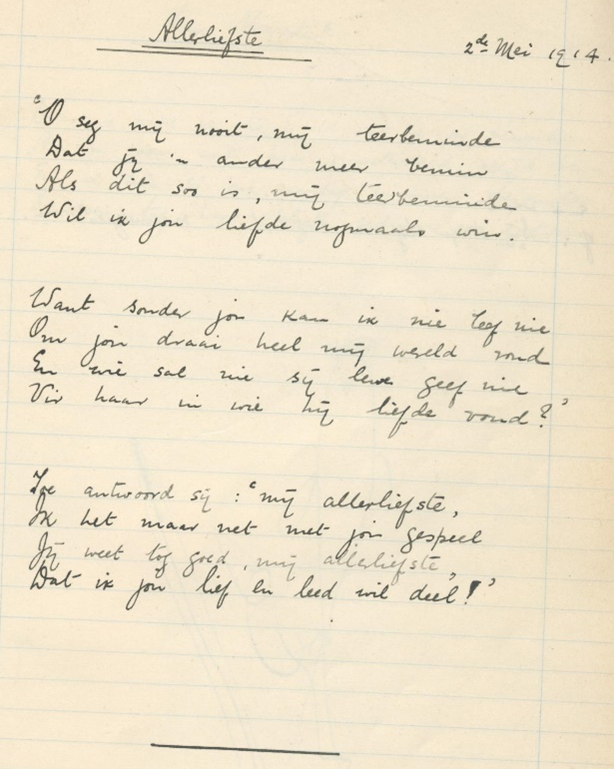 Allerliefste
2de Mei 1914.
"O seg mÿ nooit, mÿ teerbeminde
Dat jÿ 'n ander meer bemin
Als dit soo is, mÿ teerbeminde
Wil ik jou liefde nogmaals win.
Want sonder jou kan ik nie leef nie
Om jou draai heel mÿ wereld rond
En wie sal nie sÿ lewe geef nie
Vir haar in wie hÿ liefde vond?"
Toe antwoord sÿ: "mÿ allerliefste,
Ik het maar net met jou gespeel
Jÿ weet tog goed, mÿ allerliefste,
Dat ik jou lief en leed wil deel!"